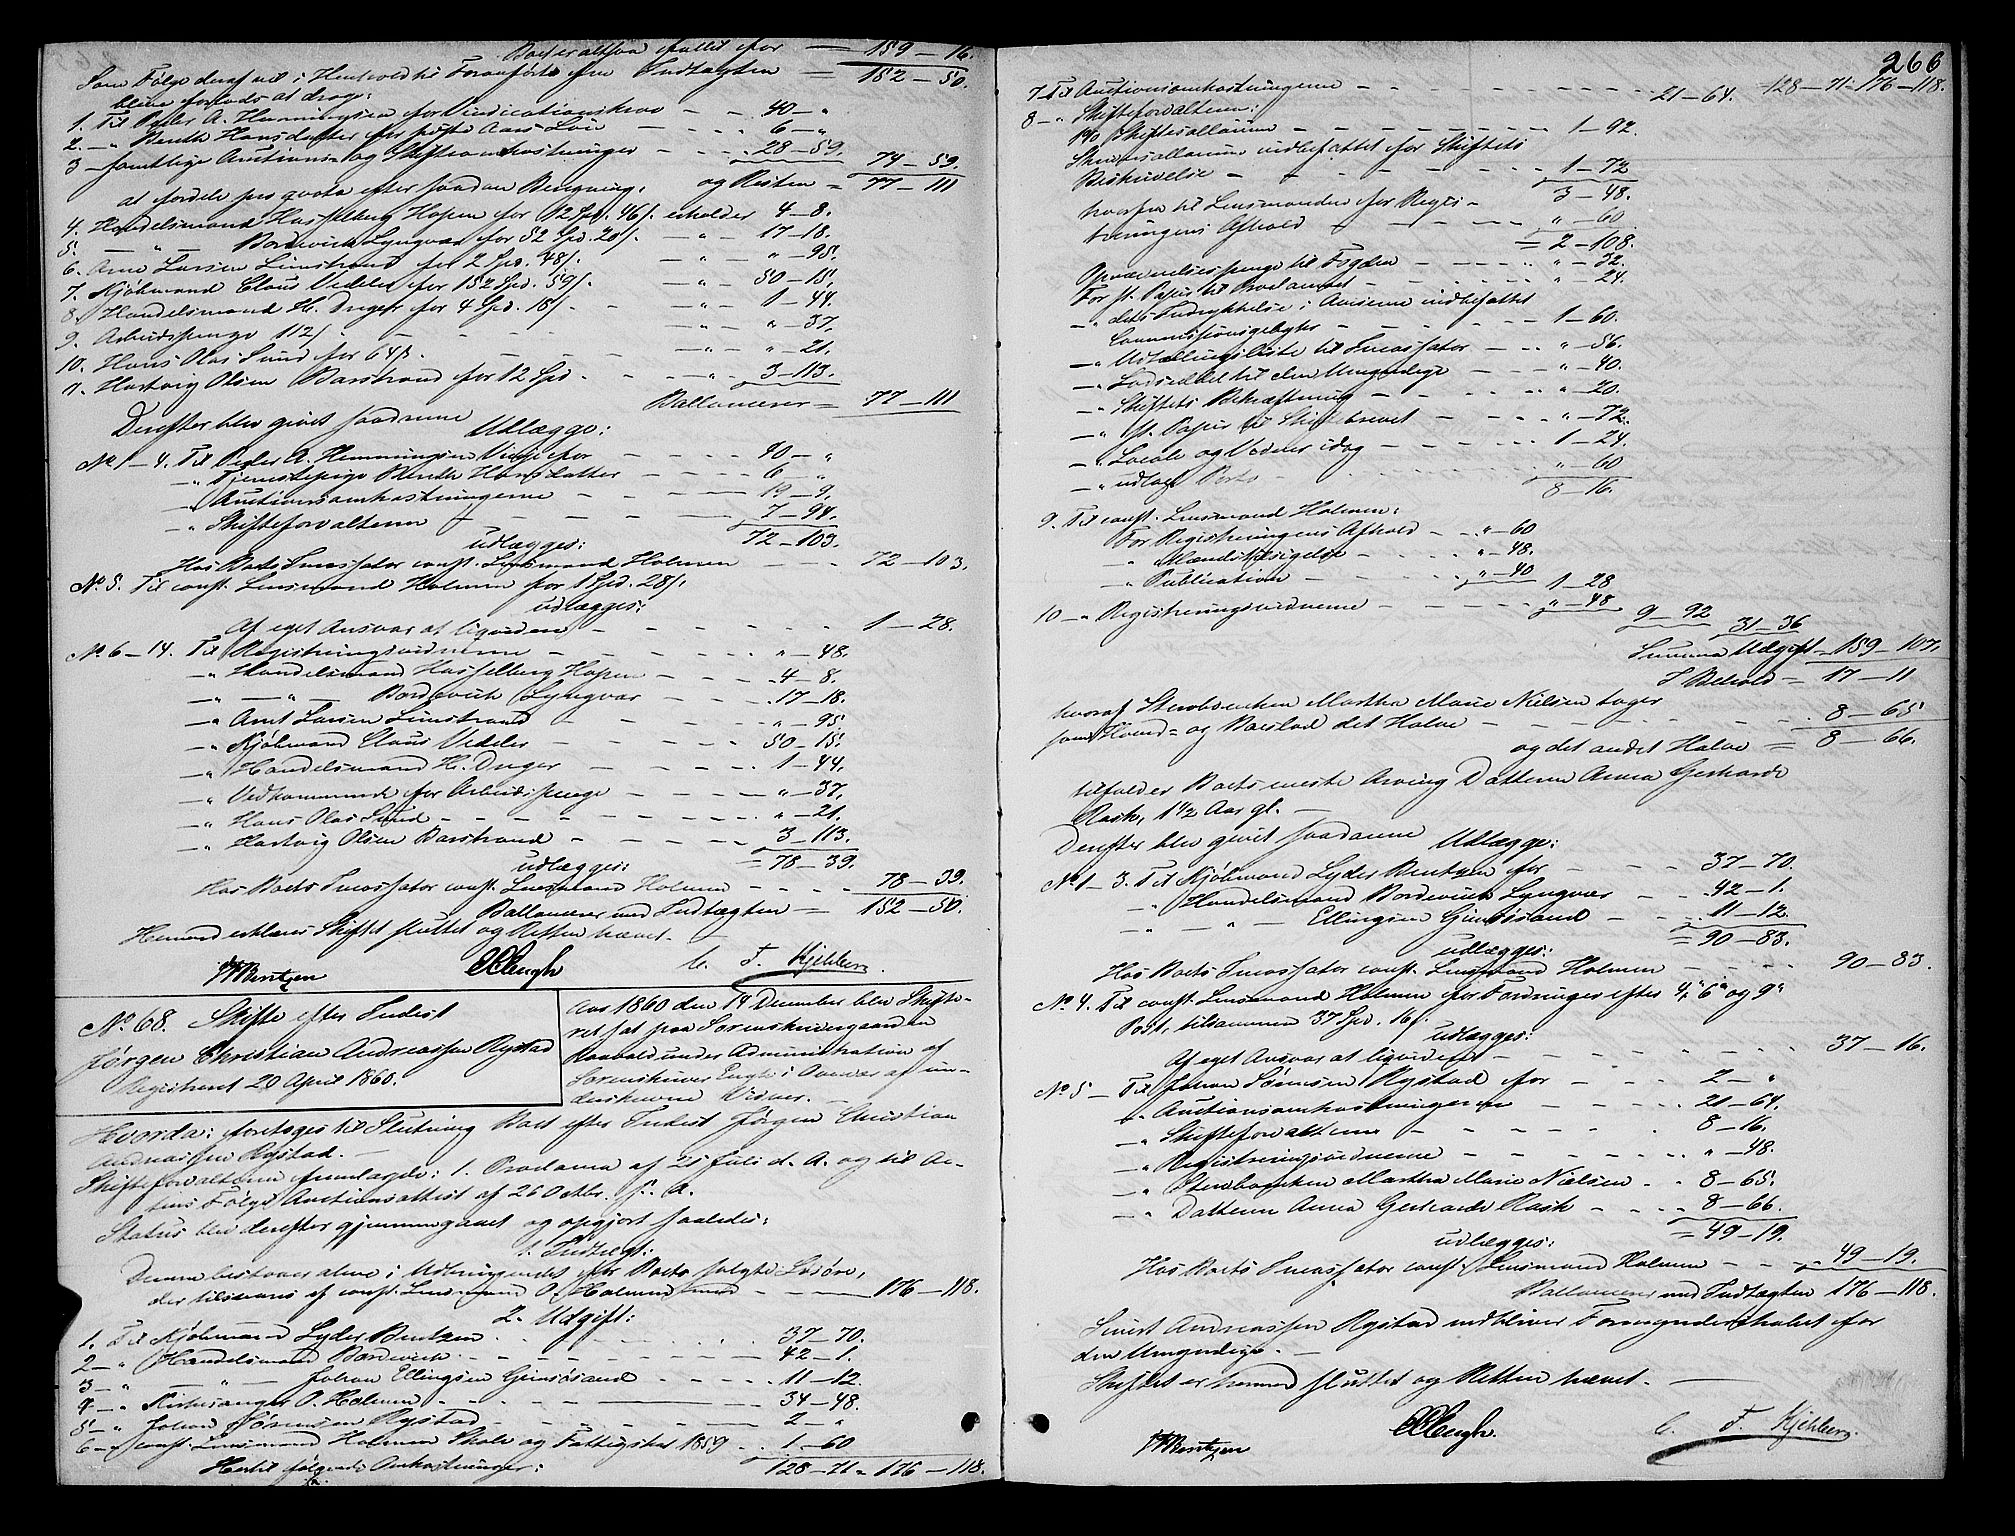 Boet er altsaa fallit for — 159 – 16.
Som Følge deraf vil i Henhold til Foranførte efter Indtægten — 152 – 50.
blive forlods at drage:
1. Til Peder A. Hemmingsen for Vindicationskrav — 40 – "
2. — " Benth Hansdatter for sidste Aars Løn — 6 – "
3 — samtlige Auctions- og Skifteomkostninger — 28 – 59. 74 – 59.
og Resten = 77 – 111
at fordele pro qvota efter saadan Beregning:
4. Handelsmand Hasselberg Hopen for 12 Spd. 46 s. erholder 4 – 8.
5. — " — Bordevick Lyngvær for 52 Spd. 20 s. — " — 17 – 18.
6. Arnt Larsen Limstrand for 2 Spd. 48 s. — " — " – 95.
7. Kjøbmand Claus Vedeler for 152 Spd. 59 s. — " — 50 – 15.
8. Handelsmand H. Dreyer for 4 Spd. 18 s. — " — 1 – 44.
9. Arbeidspenge 112 s. — " — " – 37.
10. Hans Olas Sund for 64 s. — " — " – 21.
11. Hartvig Olsen Barstrand for 12 Spd. — " — 3 – 113.
Ballancerer = 77 – 111
Derefter blev givet saadanne
Udlægge:
No 1 – 4. Til Peder A. Hemmingsen Vinje for — 40 – "
— " Tjenestepige Benth Hansdatter — 6 – "
— " Auctionsomkostningerne — 19 – 9.
— " Skifteforvalteren — 7 – 94.
udlægges: 72 – 103.
Hos Boets Incassator const. Lensmand Holmen — 72 – 103.
No 5. Til const. Lensmand Holmen for 1 Spd. 28 s.
udlægges:
Af eget Ansvar at liqvidere — 1 – 28.
No 6 – 14. Til Registreringsvidnerne — " – 48.
— " Handelsmand Hasselberg Hopen — 4 – 8.
— " — " — Bordevick Lyngvær — 17 – 18.
— " Arnt Larsen Limstrand — " – 95.
— " Kjøbmand Claus Vedeler — 50 – 15.
— " Handelsmand H. Dreyer — 1 – 44.
— " Vedkommende for Arbeidspenge — " – 37.
— " Hans Olas Sund — " – 21.
— " Hartvig Olsen Barstrand — 3 – 113.
udlægges: = 78 – 39.
Hos Boets Incassator const. Lensmand Holmen — 78 – 39.
Ballancerer med Indtægten = 152 – 50.
Hermed erklæres Skiftet sluttet og Retten hævet. —
Bentzen Engh C. F. Kjehlberg.
No 68. Skifte efter Inderst
Jørgen Christian Andreassen Rystad
Registreret 20 April 1860.
Aar 1860 den 14 December blev Skifte-
ret sat paa Sorenskrivergaarden
under Administration af
Sorenskriver Engh i Overvær af un-
derskrevne Vidner. —
Hvorda: foretoges til Slutning Boet efter Inderst Jørgen Christian
Andreassen Rystad. —
Skifteforvalteren fremlagde: 1. Proclama af 25 Juli d. A. og til Ac-
tens Følge Auctionsattest af 26 Octbr. s. A.
Status blev derefter gjennemgaaet og opgjort saaledes:
1. Indtægt:
Denne bestaaer alene i Udbringendet for Boets solgte Løsøre,
der tilsvares af const. Lensmand O. Holmen med — 176 – 118.
2. Udgift:
1. Til Kjøbmand Lyder Bentzen — 37 – 70.
2 — " Handelsmand Bordevick — 42 – 1.
3 — " — " — Johan Ellingsen Gimsøsand — 11 – 12.
4 — " Kirkesanger O. Holmen — 34 – 48.
5 — " Johan Sørensen Rystad — 2 – "
6 — " const. Lensmand Holmen Skole og Fattigskat 1859 — 1 – 60
Hertil følgende Omkostninger: 128 – 71 = 176 – 118.
266
7 Til Auctionsomkostningerne — 21 – 64. 128 – 71 = 176 – 118.
8 — " Skifteforvalteren:
Skiftesallarium — 1 – 92.
Skriversallarium indbefattet for Skiftets
Beskrivelse — 1 – 72
3 – 48.
hvorfra til Lensmanden for Regis-
treringens Afhold — " – 60
= 2 – 108.
Opnævnelsespenge til Fogden — " – 32.
For st. Papir til Proclamaet — " – 24.
— " dets Indrykkelse i Aviserne indbefattet
Commissionsgebyhr — 1 – 60.
— " Udtællingsliste til Incassator — " – 56.
— " Lodseddel til den Umyndige — " – 40.
— " Skiftets Bekræftning — " – 20.
— " st. Papir til Skiftebrevet — " – 72.
— " Locale og Vidner idag — 1 – 24.
— " udlagt Porto — " – 60
8 – 16.
9. Til const. Lensmand Holmen:
For Registreringens Afhold — " – 60
— " Mændstilsigelse — " – 48.
— " Publication — " – 40
1 – 28
10 — " Registreringsvidnerne — " – 48
9 – 92 31 – 36
Summa Udgift — 159 – 107.
I Behold = 17 – 11
hvoraf Sterboenken Martha Marie Nielsen tager
som Hoved- og Boeslod det Halve — 8 – 65
og det andet Halve = 8 – 66.
tilfalder Boets eneste Arving Datteren Anna Gerharde
Rask, 1 1/2 Aar gl. —
Derefter blev givet saadanne
Udlægge:
No 1 – 3. Til Kjøbmand Lyder Bentzen for — 37 – 70.
— " Handelsmand Bordevick Lyngvær — 42 – 1.
— " — " — Ellingsen Gimsøsand — 11 – 12.
udlægges: = 90 – 83.
Hos Boets Incassator const. Lensmand Holmen — 90 – 83.
No 4. Til const. Lensmand Holmen for Fordringer efter 4, 6 og 9
Post, tilsammen 37 Spd. 16 s.
udlægges:
Af eget Ansvar at liqvidere — 37 – 16.
No 5 — Til Johan Sørensen Rystad for — 2 – "
— " Auctionsomkostningerne — 21 – 64.
— " Skifteforvalteren — 8 – 16.
— " Registreringsvidnerne — " – 48.
— " Sterboenken Martha Marie Nielsen — 8 – 65.
— " Datteren Anna Gerharde Rask — 8 – 66.
udlægges: = 49 – 19.
Hos Boets Incassator const. Lensmand Holmen — 49 – 19.
Ballancerer med Indtægten 176 – 118.
Sivert Andreassen Rystad indbliver Formynderskabet for
den Umyndige. —
Skiftet er hermed sluttet og Retten hævet. —
Bentzen Engh. C. F. Kjehlberg.